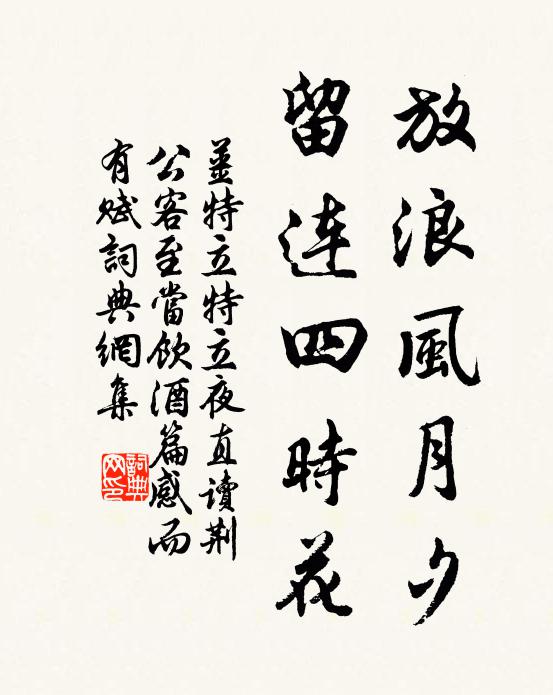 放浪風月夕
留連四時花
姜特立特立夜直讀荆
公客至當飲酒篇感而
有賦詞典網集
詞典網印